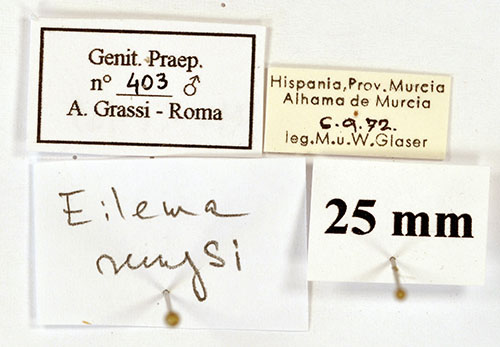 Genit. Praep.
n° 403 ♂
A. Grassi - Roma
Hispania, Prov. Murcia
Alhama de Murcia
6.9.72.
leg. M. u. W. Glaser
Eilema
rungsi
25 mm